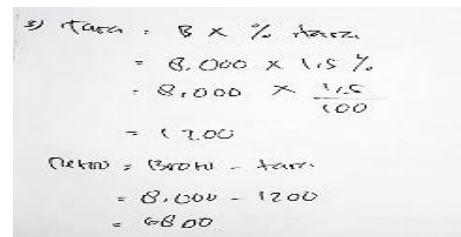 3) Tara = B x % tara
= 8.000 x 1,5 %
= 8.000 x 1,5
100
= 1200
Netto = Bruto - tara
= 8.000 - 1200
= 6800